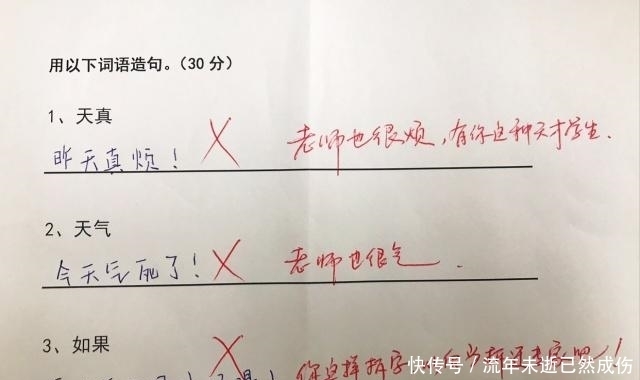 用以下词语造句。（30分）
1、天真
昨天真烦！ 老师也很烦，有你这种天才学生.
2、天气
今天气死了！ 老师也很气.
3、如果
快传号／流年未逝已然成伤